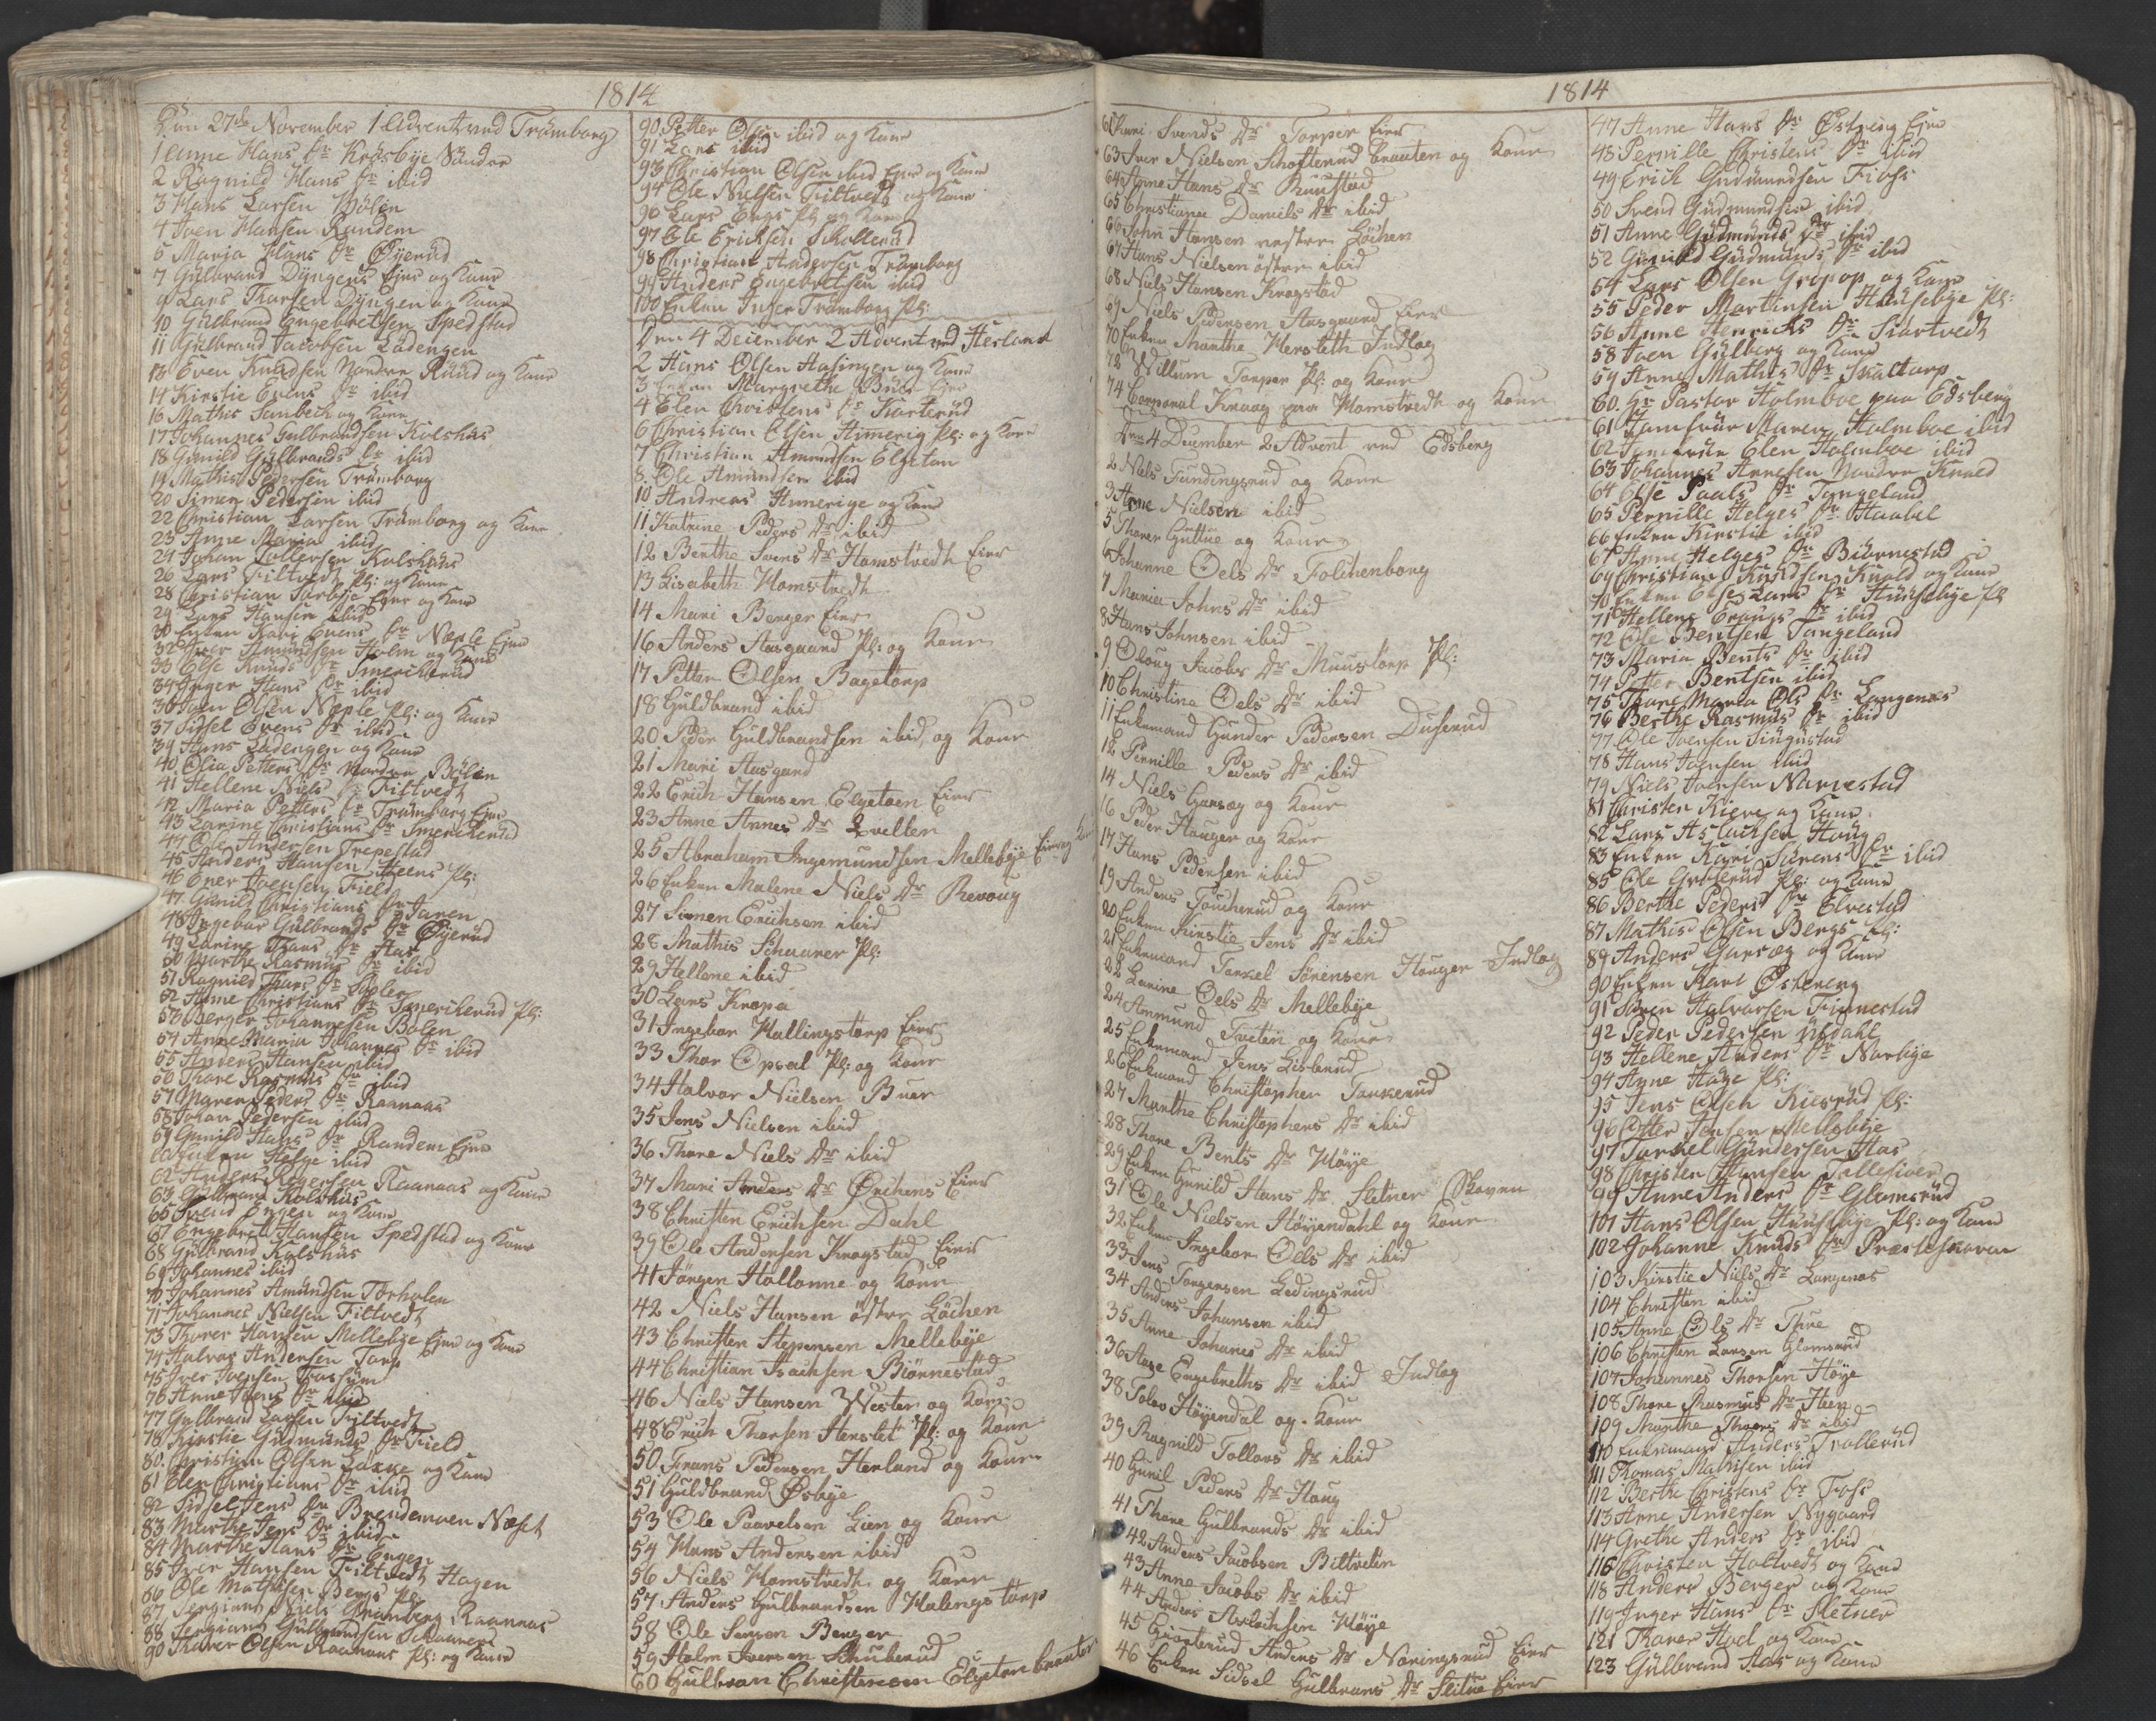 1814
Den 27de November 1 Advent ved Trømborg
1 Anne Hans Dr Kråsbye Søndre
2 Ragnild Hans Dr ibid
3 Hans Larsen Bølen
4 Joen Hansen Randem
5 Maria Hans Dr Øyerud
7 Gulbrand Dyngens Eyer og Kone
9 Lars Thorsen Dyngen og Kone
10 Gulbrand Engebretsen Spedstad
11 Gulbrand Jacobsen Ladengen
13 Even Knudsen Nordre Ruud og Kone
14 Kirstie Evens Dr ibid
16 Mathis Sembech og Kone
17 Johannes Gulbrandsen Kolshus
18 Gunild Gulbrands Dr ibid
19 Mathis Pedersen Trømborg
20 Simen Pedersen ibid
22 Christian Larsen Trømborg og Kone
23 Anne Maria ibid
24 Johan Tollersen Kolshuus
26 Lars Filtvedt Pl: og Kone
28 Christian Torbye Eyer og Kone
29 Lars Hansen ibid
30 Enken Kari Evens Dr Neple Eyer
32 Iver Amundsen Holm og Kone
33 Else Knuds Dr Smerchrud
34 Inger Hans Dr ibid
36 Joen Olsen Neple Pl: og Kone
37 Sissel Evens Dr ibid
39 Hans Ladengen og Kone
40 Olia Petters Dr Nordre Bølen
41 Hellene Niels Dr Filtvedt
42 Maria Petters Dr Trømborg Eyer
43 Karine Christians Dr Smercherud
44 Ole Andersen Trepestad
45 Anders Hansen Heens Pl:
46 Iver Joensen Field
47 Gunild Christians Dr Jaren
48 Ingebor Gulbrands Dr Øyerud
49 Karine Thors Dr Has
50 Marthe Rasmus Dr ibid
51 Ragnild Thors Dr Bøler
52 Anne Christians Dr Smercherud Pl:
53 Berger Johannesen Bølen
54 Anne Maria Johannes Dr ibid
55 Anders Hansen ibid
56 Thore Rasmus Dr ibid
57 Maren Peders Dr Raanaas
58 Johan Pedersen ibid
59 Gunild Hans Dr Randem Eyer
60 Enken Helge ibid
62 Anders Rogersen Raanaas og Kone
63 Gulbrand Kolshus
65 Svend Engen og Kone
67 Engebret Hansen Spedstad og Kone
68 Gulbrand Kolshus
69 Johannes ibid
70 Johannes Amundsen Torholen
71 Johannes Nielsen Filtvedt
73 Thorer Hansen Mellebye Eyer og Kone
74 Halvor Andersen Torp
75 Iver Joensen Fossum
76 Anne Joens Dr ibid
77 Gulbrand Larsen Filtvedt
78 Kirstie Gudmunds Dr Field
80. Christian Olsen Lakke og Kone
81 Elen Christians Dr ibid
82 Sidsel Jens Dr Brendemoen Næset
83 Marthe Jens Dr ibid
84 Marthe Hans Dr Engen
85 Iver Hansen Filtvedt Hagen
86 Ole Mathisen Bergs Pl:
87 Sergiant Niels Grønberg Raanaas
88 Sergiant Gulbrandsen Schaarer
90 Thorer Olsen Raanaas Pl: og Kone
90 Petter Olsen ibid og Kone
91 Lars ibid
93 Christian Olsen ibid Eyer og Kone
94 Ole Nielsen Filtvedt og Kone
96 Lars Bergs Pl: og Kone
97 Ole Erichsen Skollerud
98 Christian Andersen Trømborg
99 Anders Engebretsen ibid
100 Enken Inger Trømborg Pl:
Den 4 December 2 Advent ved Herland
2 Hans Olsen Hasingen og Kone
3 Enken Margrethe Buer Eyer
4 Elen Christens Dr Karterud
6 Christian Olsen Himerig Pl: og Kone
7 Christian Amundsen Elgetun
8. Ole Amundsen ibid
10 Andreas Himerige og Kone
11 Katrine Peders Dr ibid
12 Berthe Svens Dr Hamstvedt Eier
13 Lisabeth Homstvedt
14 Mari Berger Eier
16 Anders Aasgaard Pl: og Kone
17 Petter Olsen Bagetorp
18 Guldbrand ibid
20 Peder Guldbrandsen ibid og Kone
21 Mari Aasgard
22 Erich Hansen Elgetoen Eier
23 Anne Annes Dr Qvelten
25 Abraham Ingemundsen Mellebye Eier og Kone
26 Enken Malene Niels Dr Revoug
27 Simen Erichsen ibid
28 Mathis Schaarer Pl:
29 Hellene ibid
30 Lars Kropa
31 Ingebor Hallingstorp Eier
33 Thor Opsal Pl: og Kone
34 Halvor Nielsen Buer
35 Jens Nielsen ibid
36 Thore Niels Dr ibid
37 Mari Anders Dr Ørchens Eier
38 Christen Erichsen Dahl
39 Ole Andersen Kragstad Eier
41 Jørgen Hallonne og Kone
42 Niels Hansen østre Løchen
43 Christen Stepensen Mellebye
44 Christian Isachsen Biønnestad
46 Niels Hansen Wester og Kone
48 Erich Thorsen Herslet Pl: og Kone
50 Frans Pedersen Herland og Kone
51 Guldbrand Øsbye
53 Ole Paavelsen Lien og Kone
54 Hans Andersen ibid
56 Niels Homstvedt og Kone
57 Anders Gulbrandsen Halingstorp
58 Ole Sørsen Berger
59 Holm Iversen Skuberud
60 Gulbran Christensen Elgetun brauter
1814
61 Mari Svends Dr Torper Eier
63 Iver Nielsen Schofterud brauten og Kone
64 Anne Hans Dr Ruustad
65 Christiane Daniels Dr ibid
66 John Hansen vestre Løchen
67 Hans Nielsen østre ibid
68 Niels Hansen Kragstad
69 Niels Pedersen Aasgaard Eier
70 Enken Marthe Hersleth Indlog
72 Willum Torper Pl: og Kone
74 Corporal Kraag paa Homstvedt og Kone
Den 4 December 2 Advent ved Edsberg
2 Niels Tundingsrud og Kone
3 Arne Nielsen ibid
5 Thorer Guttue og Kone
6 Johanne Oels Dr Folchenborg
7 Maria Johns Dr ibid
8 Hans Johnsen ibid
9 Oloug Jacobs Dr Muustorp Pl:
10 Christine Oels Dr ibid
11 Enkemand Gunder Pedersen Duserud
12 Pernille Peders Dr ibid
14 Niels Garsøg og Kone
16 Peder Hauger og Kone
17 Hans Pedersen ibid
19 Anders Toucherud og Kone
20 Enken Kirstie Jens Dr ibid
21 Enkemand Torkel Sørensen Hauger Indlog
22 Karine Oels Dr Mellebye
24 Ammund Tveten og Kone
25 Enkemand Jens Lisbrud
26 Enkmand Christopher Taukerud
27 Marthe Christophers Dr ibid
28 Thore Bents Dr Høye
29 Enken Gunild Hans Dr Sletner Skoven
31 Ole Nielsen Høyendahl og Kone
32 Enken Ingebor Oels Dr ibid
33 Jens Torgersen Ledingsrud
34 Anders Johansen ibid
35 Anne Johanes Dr ibid
36 Aase Engebreths Dr ibid Indlog
38 Tolov Høyendal og Kone
39 Ragnild Tollovs Dr ibid
40 Gunil Peders Dr Haug
41 Thore Gulbrands Dr ibid
42 Anders Jacobsen Biltvetin
43 Anne Jacobs Dr ibid
44 Anders Aslachsen Høye
45 Anders Dr Næringsrud Eier
46 Enken Sidsel Gulbrans Dr Sletne Eier
47 Anne Hans Dr Østreng Eyer
48 Pernille Christens Dr ibid
49 Erich Gudmundsen Foss
50 Svend Gudmundsen ibid
51 Anne Gudmunds Dr ibid
52 Gunild Gudmunds Dr ibid
54 Lars Olsen Gropop og Kone
55 Peder Martinsen Huusebye Pl:
56 Anne Henrichs Dr Siartvedt
58 Joen Gulberg og Kone
59 Anne Mathis Dr Skaltorp
60. Hr Pastor Holmboe paa Edsberg
61 Jomfrue Maren Holmboe ibid
62 Jomfrue Elen Holmboe ibid
63 Johannes Arnesen Nordre Knold
64 Else Paals Dr Tangeland
65 Pernille Helges Dr Haabel
66 Enken Kirstie ibid
67 Anne Helges Dr Biørnestad
69 Christian Knudsen Knold og Kone
70 Enken Else Lars Dr Huusebye Pl
71 Hellene Dr ibid
72 Ole Bentsen Tangeland
73 Maria Bents Dr ibid
74 Petter Bentsen ibid
75 Thore Maria Ols Dr Langenes
76 Berthe Rasmus Dr ibid
77 Ole Joensen Singustad
78 Hans Joensen ibid
79 Niels Joensen Narvestad
81 Christen Kiere og Kone
82 Lars Aslachsen Houg
83 Enken Kari Sørens Dr ibid
85 Ole Grøterud Pl: og Kone
86 Berthe Peders Dr Elvestad
87 Mathis Olsen Bergs Pl:
89 Anders Garsøg og Kone
90 Enken Kari Østereng
91 Søren Halvorsen Finnestad
92 Peder Pedersen Updahl
93 Hellene Anders Dr Narbye
94 Anne Hage Pl:
95 Jens Olsen Kiesrud Pl:
96 Otter Jensen Mellebye
97 Torkel Gundersen Has
98 Christen Hansen Tallesiver
99 Anne Anders Dr Glomsrud
101 Hans Olsen Huusebye Pl: og Kone
102 Johanne Knuds Dr Præsteskoven
103 Kirstie Niels Dr Langenæs
104 Christen ibid
105 Anne Ols Dr Thue
106 Christen Larsen Glomsrud
107 Johannes Thorsen Høye
108 Thore Rasmus Dr Heen
109 Marthe Thoers Dr ibid
110 Enkemand Anders Trollerud
111 Thomas Mathisen ibid
112 Berthe Christens Dr Foss
113 Arne Andersen Nygaard
114 Grethe Anders Dr ibid
116 Christen Holtvedt og Kone
118 Anders Berger og Kone
119 Inger Hans Dr Sletner
121 Thorer Hod og Kone
123 Gulbrand Aas og Kone